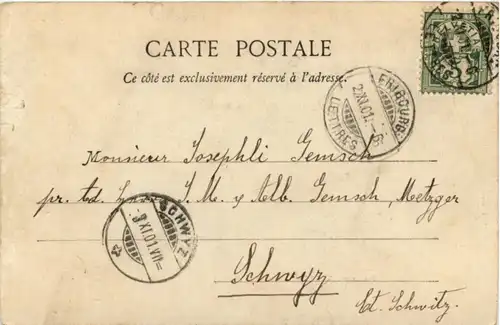 CARTE POSTALE
Ce côté est exclusivement réservé à l'adresse.
FRIBOURG
2.XI.01.-6
LETTRES
Monsieur Josephli Gemsch
pr. ad. J. M. & Alb. Gemsch, Metzger
SCHWYZ
3.XI.01.VII
Schwyz
Ct. Schwitz.